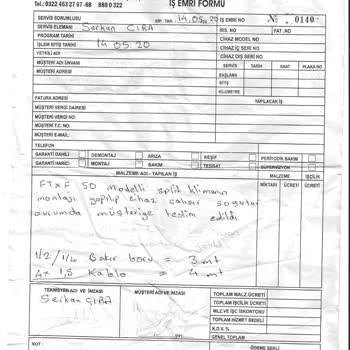 İŞ EMRİ FORMU
Tel.: 0322 453 27 67 -68 888 0 322
SERVİS SORUMLUSU
SİP. TAR. 14.05.20 İŞ EMRİ NO № 0140
SERVİS ELEMANI Serkan ÇIRA
IRS. NO FAT. NO
PROGRAM TARİHİ
CİHAZ MODEL NO
İŞLEM BİTİŞ TARİHİ 14 05 20
CİHAZ İÇ SERİ NO
YETKİLİ ADI
CİHAZ DIŞ SERİ NO
MÜŞTERİ ADI ÜNVANI
SERVİS TARİH SAAT PLAKA NO
MÜŞTERİ ADRESİ
BAŞLAMA
BİTİŞ
KİLOMETRE
FATURA ADRESİ
YAPILACAK İŞ
MÜŞTERİ VERGİ DAİRESİ
MÜŞTERİ VERGİ NO:
MÜŞTERİ T.C. NO:
MÜŞTERİ E-MAİL:
TELEFON
GARANTİ DAHİLİ DEMONTAJ ARIZA KEŞİF PERİYODİK BAKIM
GARANTİ HARİCİ MONTAJ BAKIM TESİSAT SÜPERVİZYON
MALZEME ADI - YAPILAN İŞ
MALZEME İŞÇİLİK
MİKTARI ÜCRETİ ÜCRETİ
FTXF 50 modelli split klimanın
montajı yapılıp cihaz çalışır soğutur
durumda müşteriye teslim edildi
1/2 / 1/4 Bakır boru = 3 mt
4x 1,5 Kablo = 4 mt
TEKNİSYEN ADI VE İMZASI
MÜŞTERİ ADI VE İMZASI
Serkan ÇIRA
TOPLAM MALZ.ÜCRETİ
TOPLAM İŞÇİLİK ÜCRETİ
MLZ.VE İŞÇ İSKONTOSU
TOPLAM HİZMET BEDELİ
K.D.V. %
GENEL TOPLAM
NOT :
ÖDEME SEKLİ